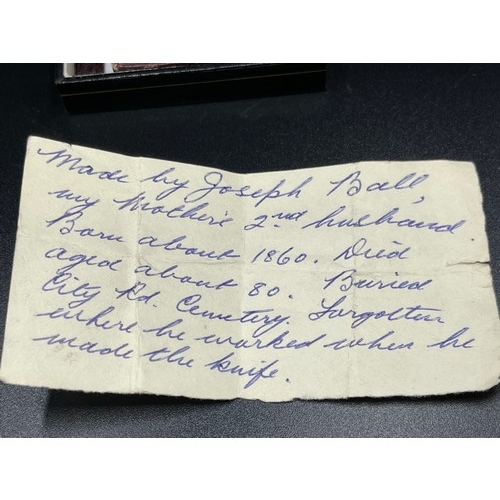 Made by Joseph Ball,
my Mother's 2nd husband.
Born about 1860. Died
aged about 80. Buried
City Rd. Cemetery. Forgotten
where he worked when he
made the knife.